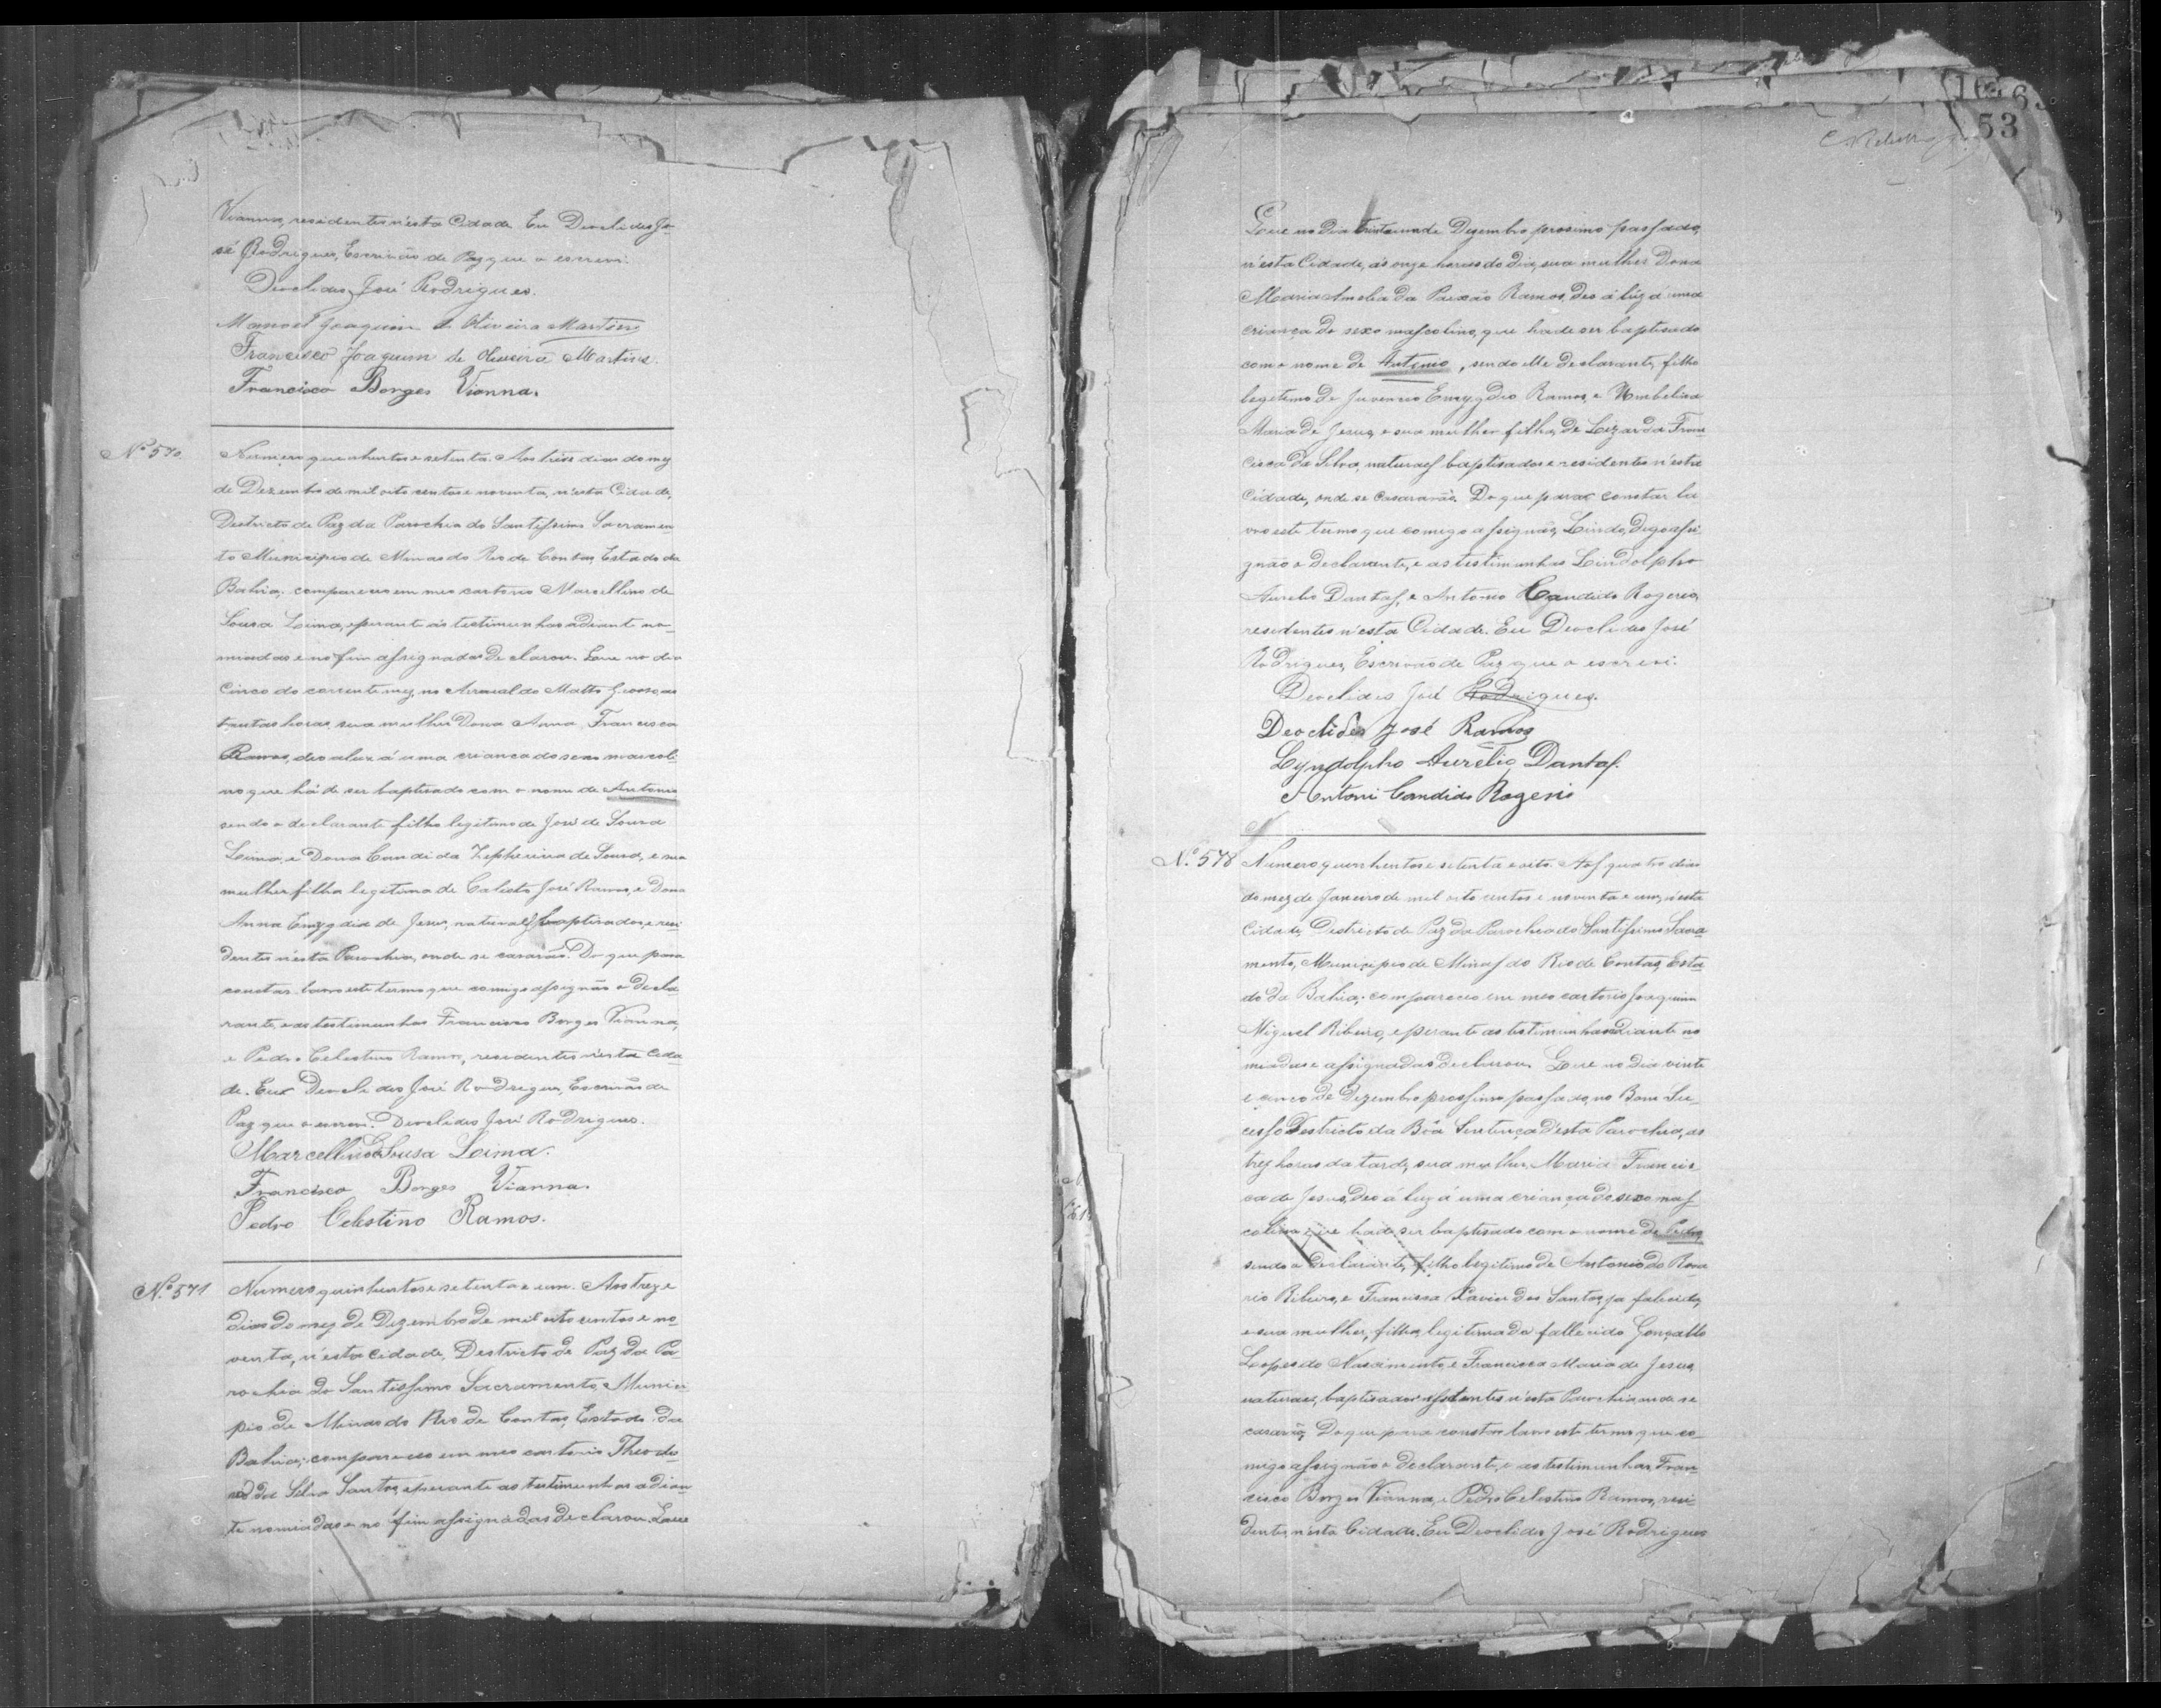 Vianna, residentes n'esta Cidade. Eu Deoclides Jo-
sé Rodrigues, Escrivão de Paz que o escrevi.
Deoclides José Rodrigues.
Manoel Joaquim de Oliveira Martins
Francisco Joaquim de Oliveira Martins.
Francisco Borges Vianna.
Nº 570
Numero quinhentos e setenta. Aos trese dias do mez
de Dezembro de mil oito centos e noventa, n'esta Cidade,
Destricto de Paz da Parochia do Santissimo Sacramen
to Municipio de Minas do Rio de Contas, Estado da
Bahia; compareceo em meo cartorio Marcellino de
Sousa Leima, e perante as testimunhas adiante no-
miadas e no fim assignadas declarou. Que no dia
Cinco do corrente mez, no Arraial do Matto Grosso, as
tantas horas, sua mulher Dona Anna Francisca
Ramos, deo a luz á uma criança do sexo mascoli
no que há de ser baptisado com o nome de Antonio
sendo o declarante filho legitimo de José de Sousa
Leima, e Dona Candida Zepherina de Sousa, e sua
mulher filha legitima de Calisto José Ramos, e Dona
Anna Emygdia de Jesus, naturaes, baptisados, e resi
dentes n'esta Parochia, onde se casarão. Do que para
constar lavro este termo que comigo assignão o decla
rante, e as testimunhas Francisco Borges Vianna,
e Pedro Celestino Ramos, residentes n'esta Cida
de. Eu Deoclides José Rodrigues, Escrivão de
Paz que o escrevi. Deoclides José Rodrigues.
Marcellino de Sousa Leima.
Francisco Borges Vianna.
Pedro Celestino Ramos.
Nº 571
Numero quinhentos e setenta e um. Aos treze
dias do mez de Dezembro de mil oito centos e no
venta, n'esta Cidade, Destricto de Paz da Pa
rochia do Santissimo Sacramento, Munici
pio de Minas do Rio de Contas, Estado da
Bahia; compareceo em meo cartorio Theodo
da Silva Santos, e perante as testimunhas adian
te nomiadas e no fim assignadas declarou. Que
53
Que no dia trinta um de Dezembro prossimo passado,
n'esta Cidade, ás onze horas do dia, sua mulher Dona
Maria Amelia da Paixão Ramos, deo á luz á uma
criança do sexo mascolino, que hade ser baptisado
com o nome de Antonio, sendo elle declarante, filho
legitimo de Juvencio Emygdio Ramos, e Umbelina
Maria de Jesus, e sua mulher filha de Lizarda Fran
cisca da Silva, naturaes baptisados e residentes n'esta
Cidade, onde se casararão. Do que para constar la
vro este termo que comigo assignão, Lindo, digo assi
gnão o declarante, e as testimunhas Lindolpho
Aurelio Dantas, e Antonio Candido Rogerio,
residentes n'esta Cidade. Eu Deoclides José
Rodrigues, Escrivão de Paz que o escrevi.
Deoclides José Rodrigues.
Deoclides José Ramos
Lyndolpho Aurelio Dantas.
Antoni Candido Rogerio
Nº 578
Numero quinhentos e setenta e oito. Aos quatro dias
do mez de Janeiro de mil oito centos e noventa e um, n'esta
Cidade, Destricto de Paz da Parochia do Santissimo Sacra
mento, Municipio de Minas do Rio de Contas, Esta
do da Bahia; compareceo em meo cartorio Joaquim
Miguel Ribeiro, e perante as testimunhas adiante no
miadas e assignadas declarou. Que no dia vinte
e cinco de Dezembro prossimo passado, no Bom Su-
cesso Destricto da Bôa Sentença d'esta Parochia, as
trez horas da tarde, sua mulher Maria Francis
ca de Jesus, deo á luz á uma criança do sexo mas
colino que hade ser baptisado com o nome de Pedro,
sendo o declarante, filho legitimo de Antonio do Rosa
rio Ribeiro, e Francisca Xavier dos Santos, ja falecida,
e sua mulher, filha legitima do fallecido Gonçallo
Lopes do Nascimento, e Francisca Maria de Jesus,
naturaes, baptisados n'esta Parochia onde se
casarão. Do que para constar lavro este termo que co-
migo assignão o declarante, e as testimunhas, Fran-
cisco Borges Vianna, e Pedro Celestino Ramos, resi
dentes n'esta Cidade. Eu Deoclides José Rodrigues